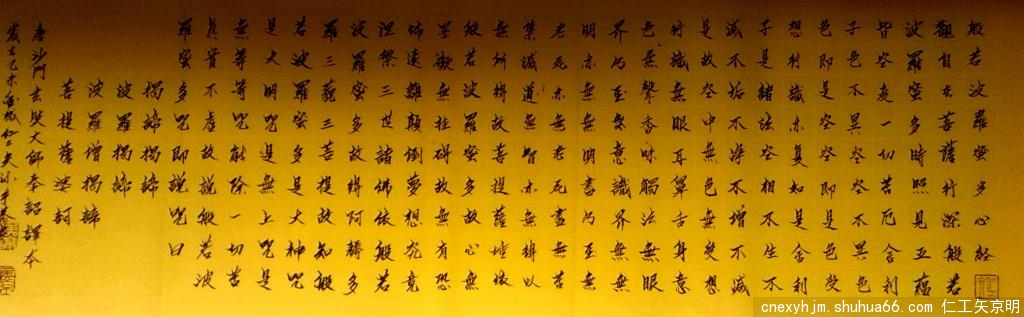 般若波羅蜜多心經
觀自在菩薩行深般若
波羅蜜多時照見五蘊
皆空度一切苦厄舍利
子色不異空空不異色
色即是空空即是色受
想行識亦復如是舍利
子是諸法空相不生不
滅不垢不淨不增不減
是故空中無色無受想
行識無眼耳鼻舌身意
色無聲香味觸法無眼
界乃至無意識界無無
明亦無無明盡乃至無
老死亦無老死盡無苦
集滅道無智亦無得以
無所得故菩提薩埵依
般若波羅蜜多故心無
罣礙無罣礙故無有恐
怖遠離顛倒夢想究竟
涅槃三世諸佛依般若
波羅蜜多故得阿耨多
羅三藐三菩提故知般
若波羅蜜多是大神咒
是大明咒是無上咒是
無等等咒能除一切苦
真實不虛故說般若波
羅蜜多咒即說咒曰
揭諦揭諦
波羅揭諦
波羅僧揭諦
菩提薩婆訶
唐沙門玄奘大師奉詔譯本
歲在乙未 仁工矢
cnexyhjm.shuhua66.com 仁工矢京明